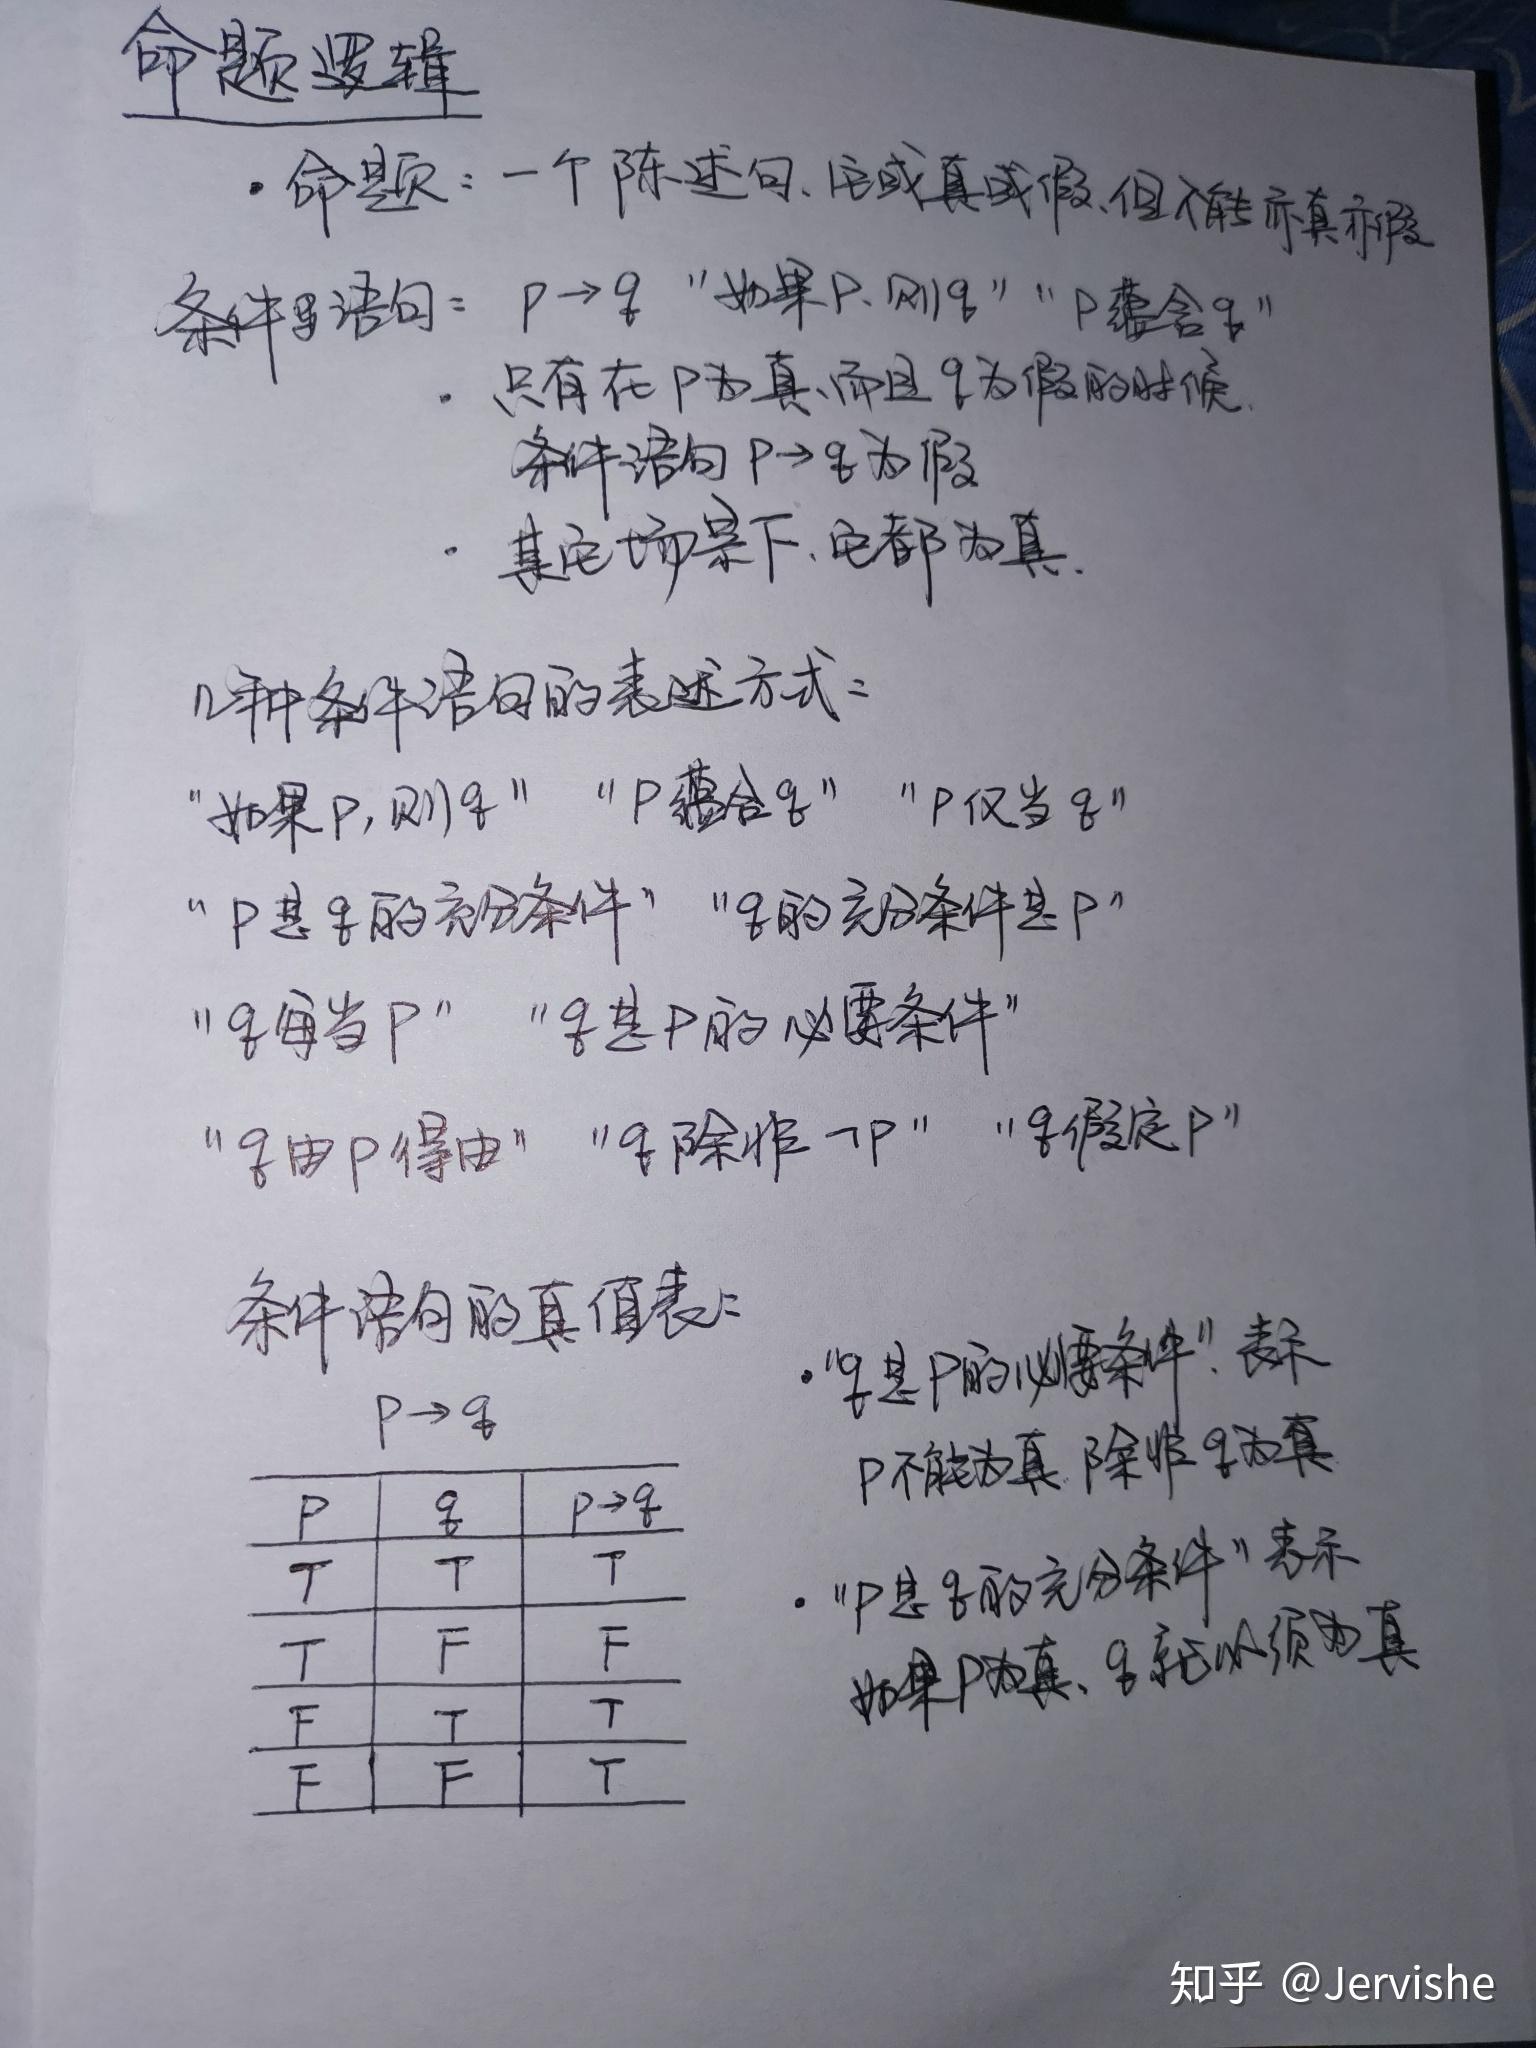 命题逻辑
· 命题: 一个陈述句、它或真或假、但不能亦真亦假
条件语句: p→q "如果p、则q" "p蕴含q"
· 只有在p为真、而且q为假的时候、
条件语句p→q为假
· 其它场景下、它都为真.
几种条件语句的表述方式:
"如果p,则q" "p蕴含q" "p仅当q"
"p是q的充分条件" "q的充分条件是p"
"q每当p" "q是p的必要条件"
"q由p得出" "q除非¬p" "q假定p"
条件语句的真值表:
p→q
p q p→q
T T T
T F F
F T T
F F T
· "q是p的必要条件"、表示
p不能为真 除非q为真
· "p是q的充分条件"表示
如果p为真、q就必须为真
知乎 @Jervishe